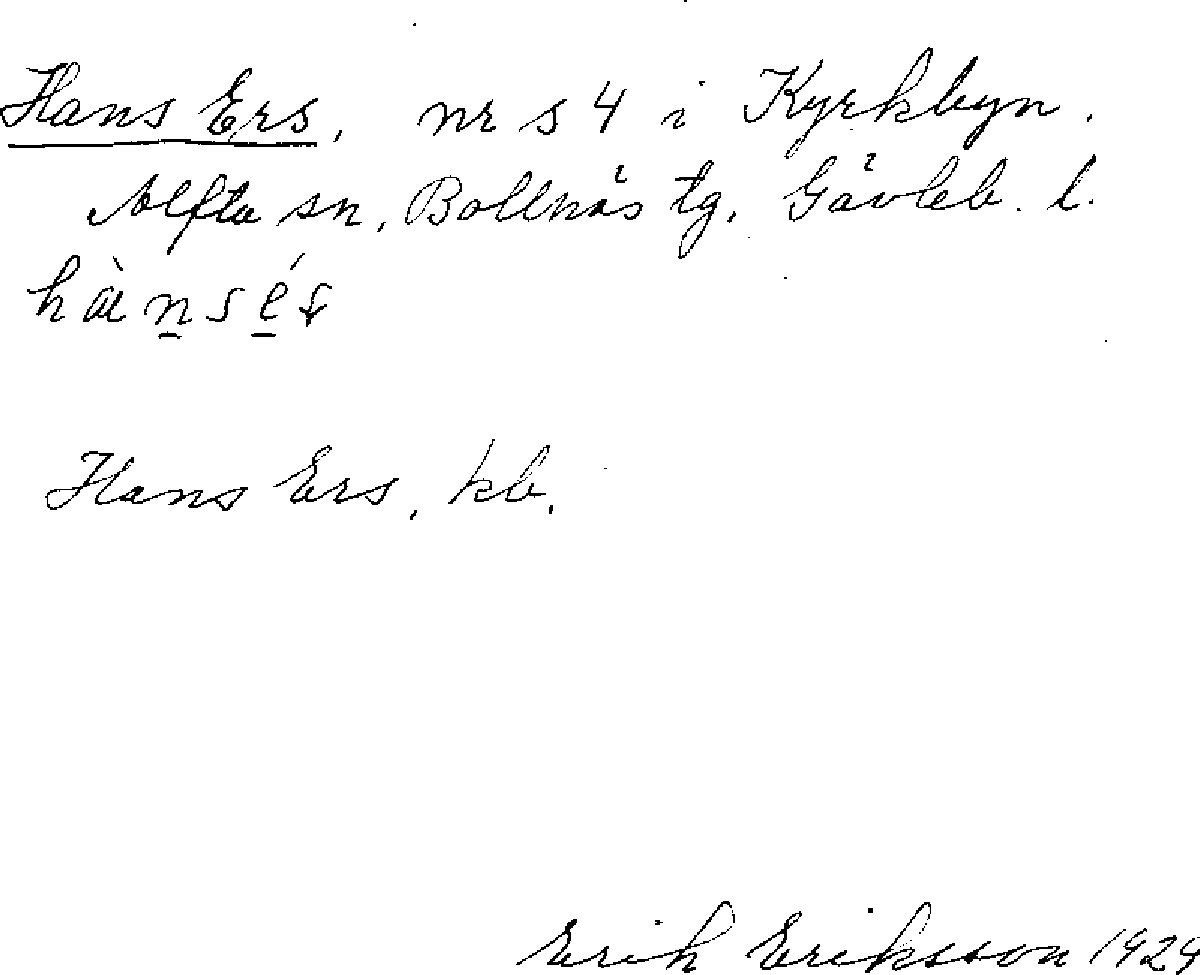 Hans Ers, nr s 4 i Kyrkbyn.
Alfta sn, Bollnäs tg, Gävleb. l.
Hans Ers, kb.
Erik Eriksson 1929